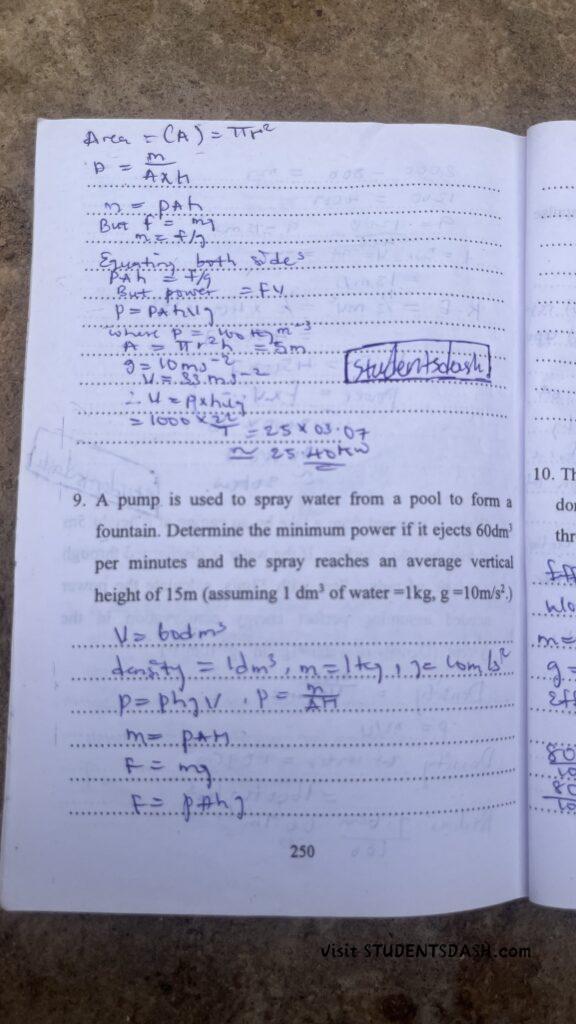 Area = (A) = πr²
P = m
AxH
m = ρAh
But f = mg
m = f/g
Equating both sides
ρAh = f/g
But power = FV
P = ρAhVg
where
A = πr²h = 5m
g = 10ms⁻²
Studentsdash
= 1000 x 22
25.40kW
9. A pump is used to spray water from a pool to form a
fountain. Determine the minimum power if it ejects 60dm³
per minutes and the spray reaches an average vertical
height of 15m (assuming 1 dm³ of water =1kg, g =10m/s².)
V = 60dm³
density = 1dm³, m = 1kg, g = 10m/s²
P = ρhgV , ρ = m
AH
m = ρAH
F = mg
F = ρAhg
250
10. Th
dor
thr
m =
g =
80
80
Visit STUDENTSDASH.com